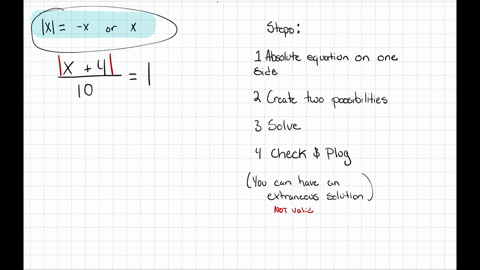 |x| = -x or x
|x + 4|
10
= 1
Steps:
1 Absolute equation on one
side
2 Create two possibilities
3 Solve
4 Check & Plug
(You can have an
extraneous solution)
NOT valid